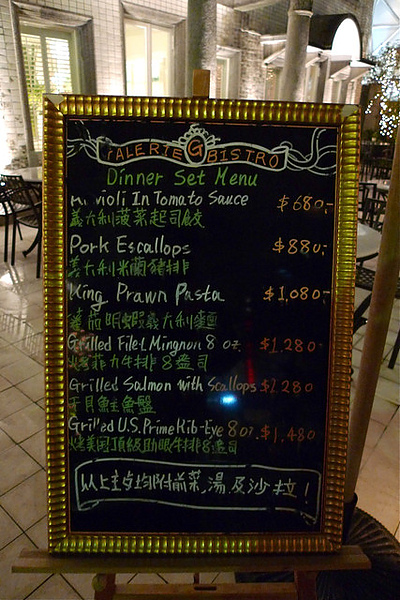 GALERIE G BISTRO
Dinner Set Menu
Ravioli In Tomato Sauce $680.-
義大利菠菜起司餃
Pork Escallops $880.-
義大利米蘭豬排
King Prawn Pasta $1,080.-
明蝦義大利麵
Grilled Filet Mingnon 8 oz $1,280.-
菲力牛排 8盎司
Grilled Salmon with Scallops $1280
干貝鮭魚盤
Grilled U.S. Prime Rib-Eye 8 oz. $1,480
烤美國頂級肋眼牛排8盎司
以上主餐均附前菜,湯及沙拉!